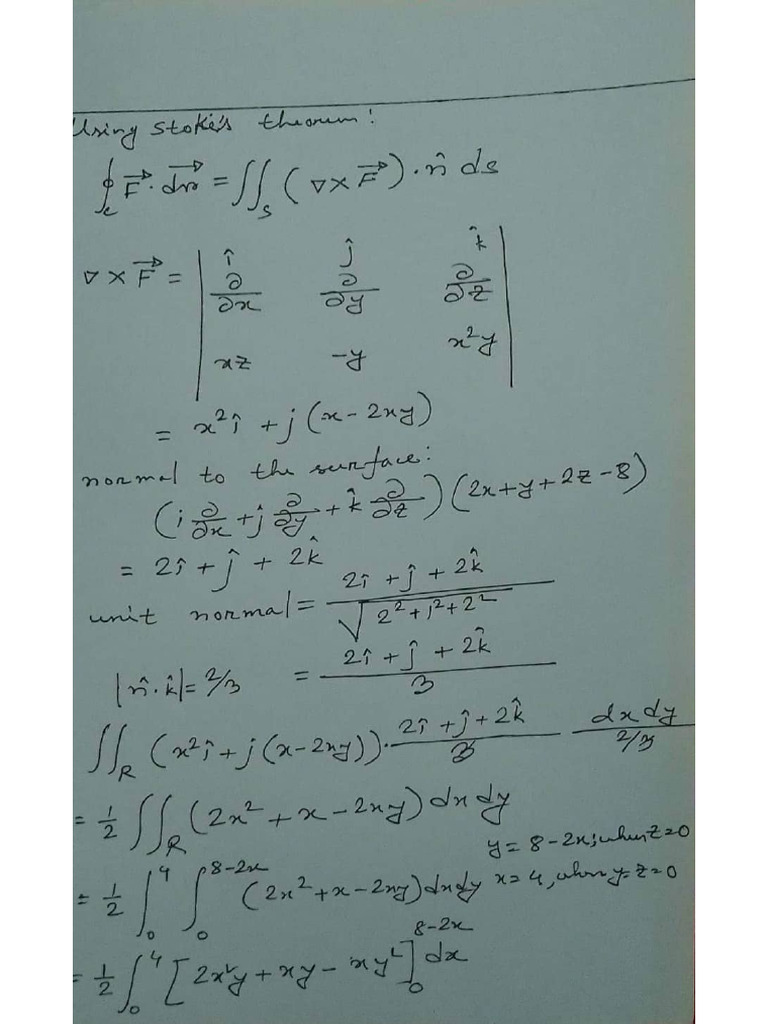 Using Stoke's theorem:
∮_c F⃗ · dr⃗ = ∬_S (∇ × F⃗) · n̂ ds
∇ × F⃗ = | î ĵ k̂ |
| ∂/∂x ∂/∂y ∂/∂z |
| xz -y x²y |
= x² î + j (x - 2xy)
normal to the surface:
(i ∂/∂x + ĵ ∂/∂y + k̂ ∂/∂z) (2x + y + 2z - 8)
= 2î + ĵ + 2k̂
unit normal = (2î + ĵ + 2k̂) / √(2² + 1² + 2²)
|n̂ · k̂| = 2/3 = (2î + ĵ + 2k̂) / 3
∬_R (x² î + j (x - 2xy)) · (2î + ĵ + 2k̂)/3 dx dy / (2/3)
= 1/2 ∬_R (2x² + x - 2xy) dx dy
y = 8 - 2x; when z = 0
= 1/2 ∫_0^4 ∫_0^{8-2x} (2x² + x - 2xy) dx dy x = 4, when y = z = 0
= 1/2 ∫_0^4 [2x²y + xy - xy²]_0^{8-2x} dx